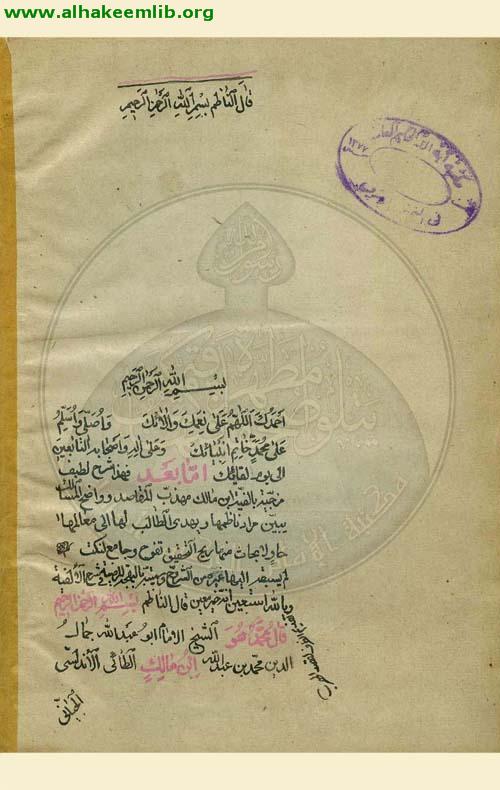 www.alhakeemlib.org
قال الناظم بسم الله الرحمن الرحيم
١٣٧٧
بسم الله الرحمن الرحيم
احمدك اللهم على نعمك والائك واصلى واسلم
على محمد خاتم انبيائك وعلى اله واصحابه التابعين
الى يوم لقائك اما بعد فهذا شرح لطيف
مزجته بالفية ابن مالك مهذب المقاصد وواضح المسالك
يبين مراد ناظمها ويهدى الطالب لها الى معالمها
حاو لابحاث منها ريح التحقيق تفوح وجامع لنكت
لم يسبقه اليها غيره من الشروح وسميته بالبهجة المرضية فى شرح الالفية
وبالله استعين انه خير معين قال الناظم بسم الله الرحمن الرحيم
قال محمد هو الشيخ الامام ابو عبد الله جمال
الدين محمد بن عبد الله ابن مالك الطائى الاندلسى
الجيانى